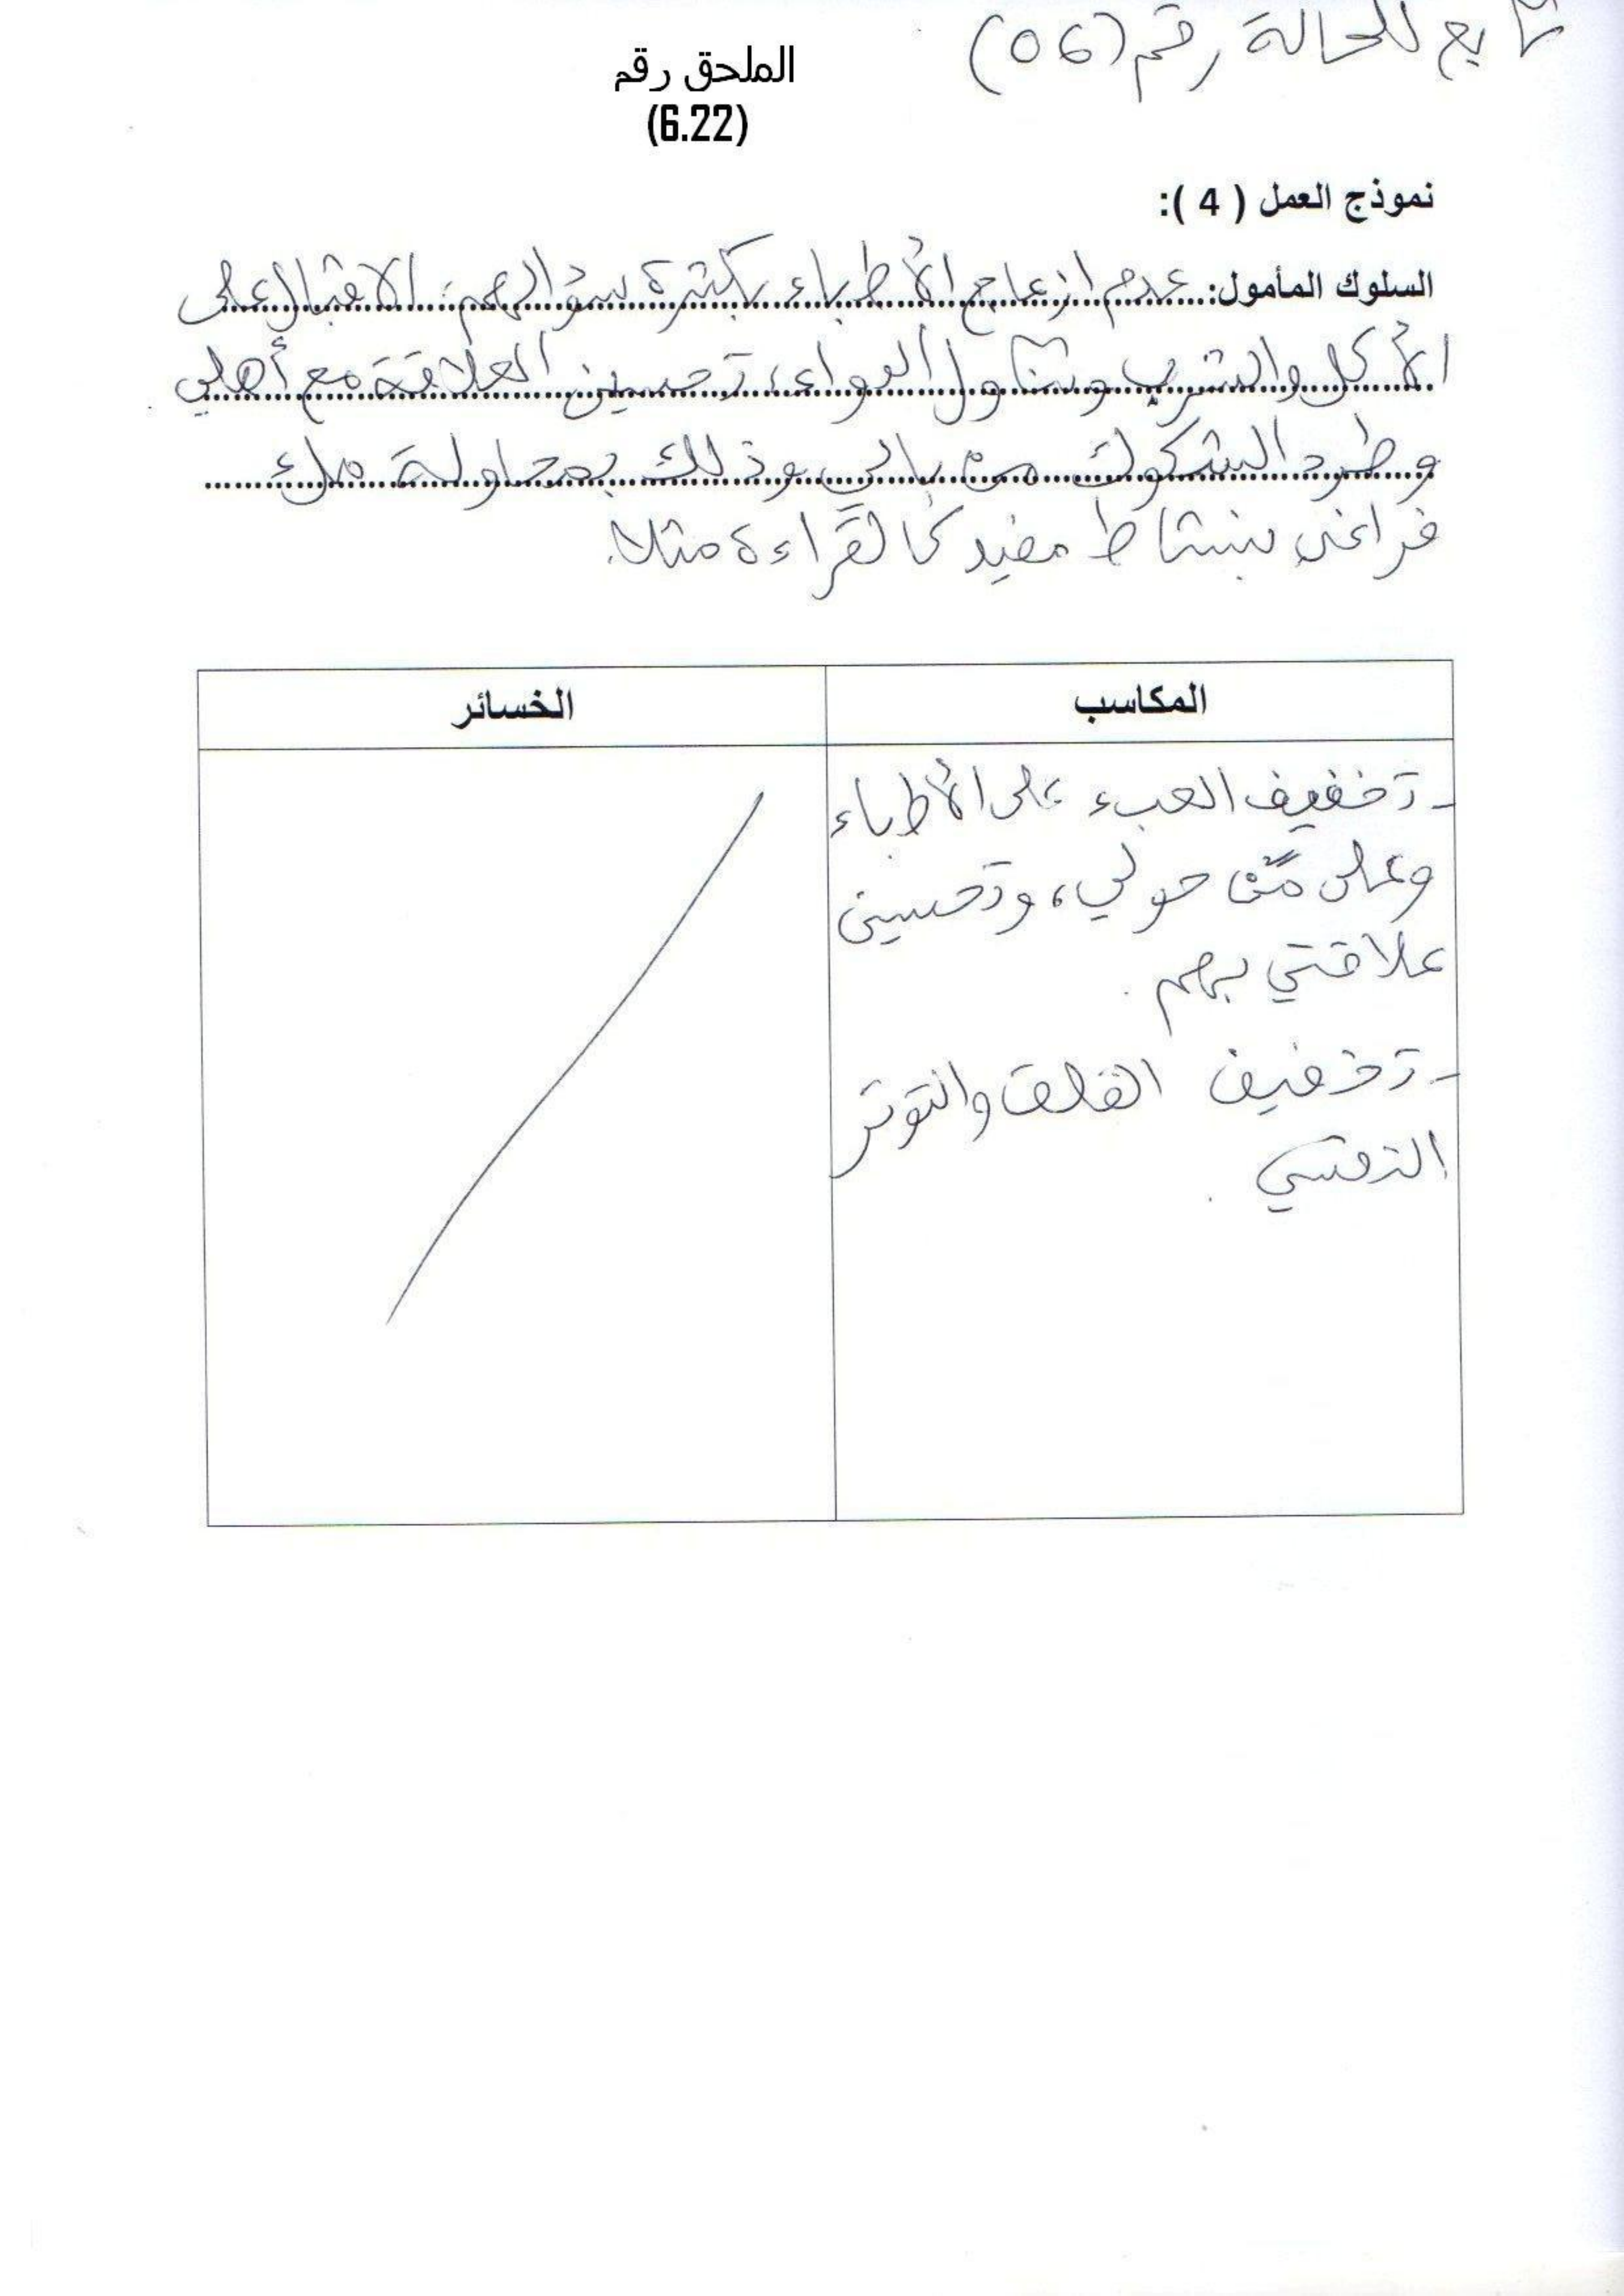 تابع للحالة رقم (06)
الملحق رقم
(6.22)
نموذج العمل ( 4 ):
السلوك المأمول: عدم ازعاج الأطباء بكثرة سؤالهم، الاقبال على
الأكل والشرب وتناول الدواء، تحسين العلاقة مع أهلي
وطرد الشكوك من بالي وذلك بمحاولة ملء
فراغي بنشاط مفيد كالقراءة مثلا.
المكاسب
الخسائر
- تخفيف العبء على الأطباء
وعلى من حولي، وتحسين
علاقتي بهم.
- تخفيف القلق والتوتر
النفسي.